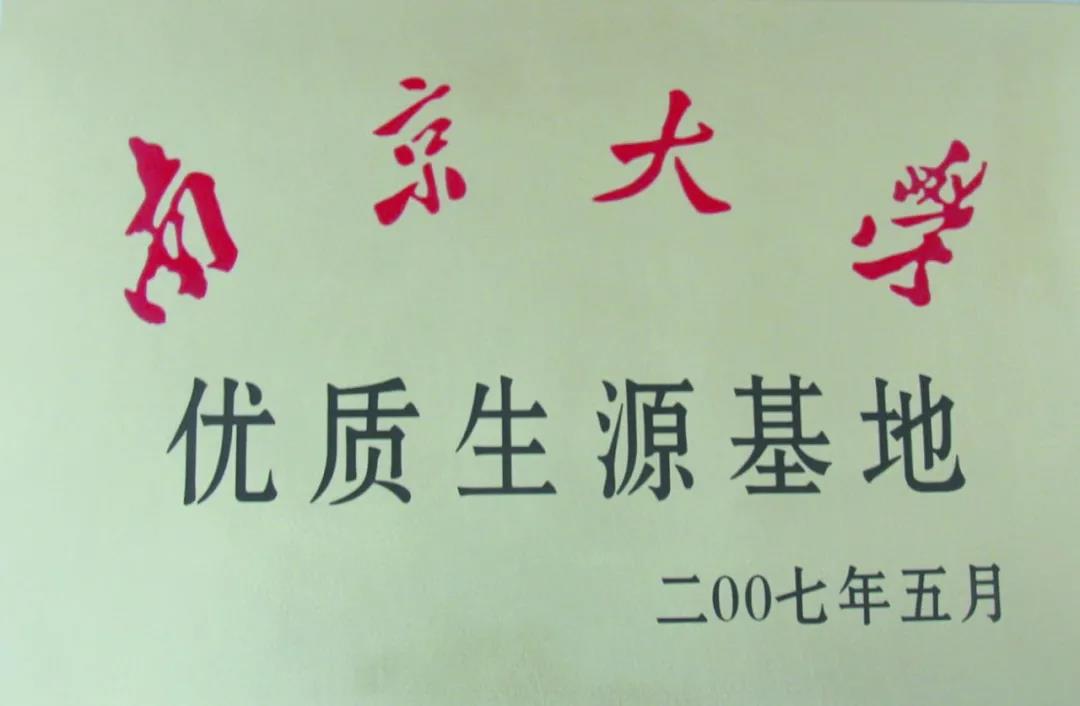 南京大學
优质生源基地
二00七年五月